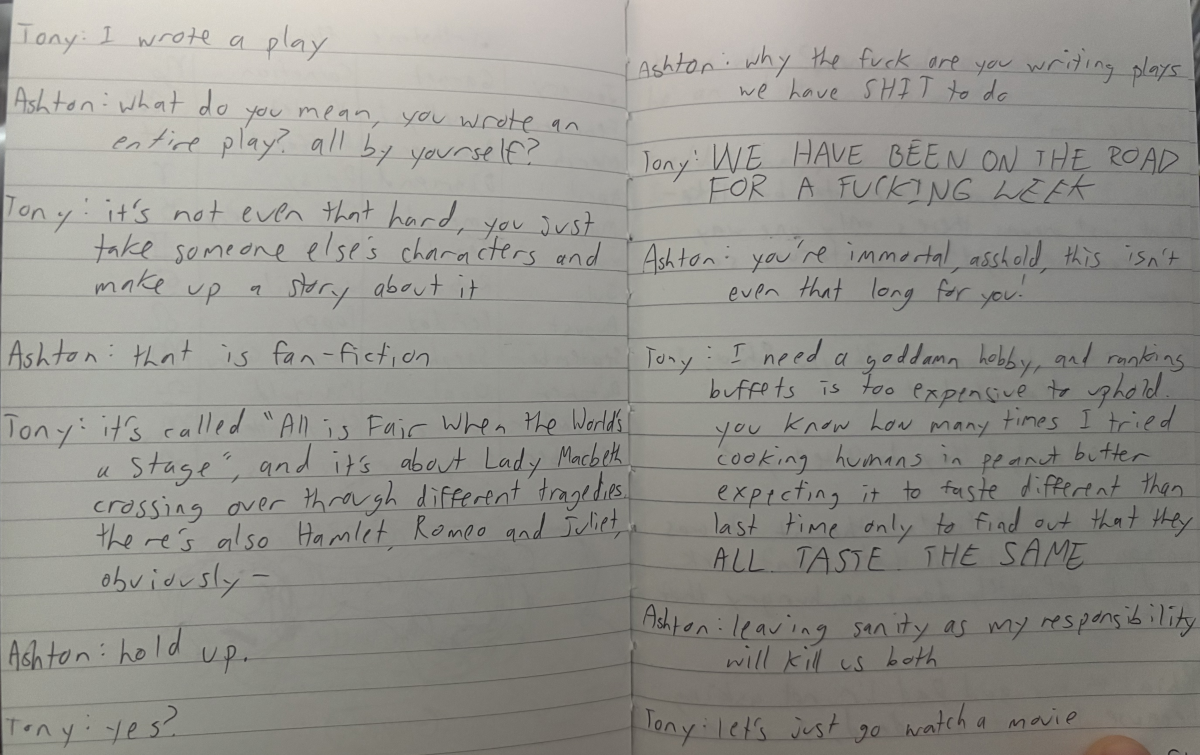 Tony: I wrote a play
Ashton: what do you mean, you wrote an
entire play? all by yourself?
Tony: it's not even that hard, you just
take someone else's characters and
make up a story about it
Ashton: that is fan-fiction
Tony: it's called "All is Fair When the World's
a Stage", and it's about Lady Macbeth
crossing over through different tragedies.
there's also Hamlet, Romeo and Juliet,
obviously —
Ashton: hold up.
Tony: yes?
Ashton: why the fuck are you writing plays
we have SHIT to do
Tony: WE HAVE BEEN ON THE ROAD
FOR A FUCKING WEEK
Ashton: you're immortal, asshold, this isn't
even that long for you!
Tony: I need a goddamn hobby, and ranking
buffets is too expensive to uphold.
you know how many times I tried
cooking humans in peanut butter
expecting it to taste different than
last time only to find out that they
ALL TASTE THE SAME
Ashton: leaving sanity as my responsibility
will kill us both
Tony: let's just go watch a movie